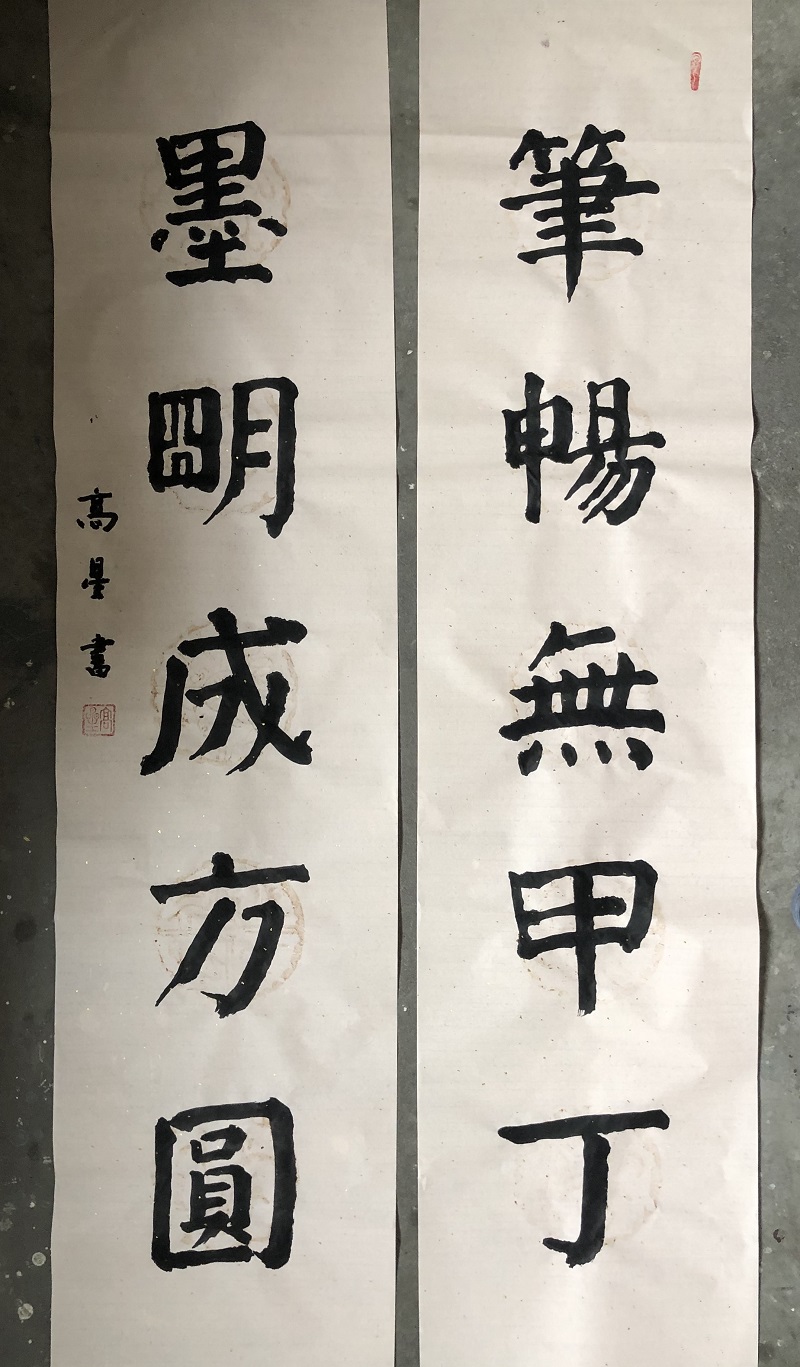 筆暢無甲丁
墨明成方圓
高星書